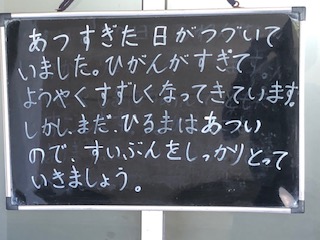 あつすぎた日がつづいて
いました。ひがんがすぎて
ようやくすずしくなってきています。
しかし、まだ、ひるまはあつい
ので、すいぶんをしっかりとって
いきましょう。